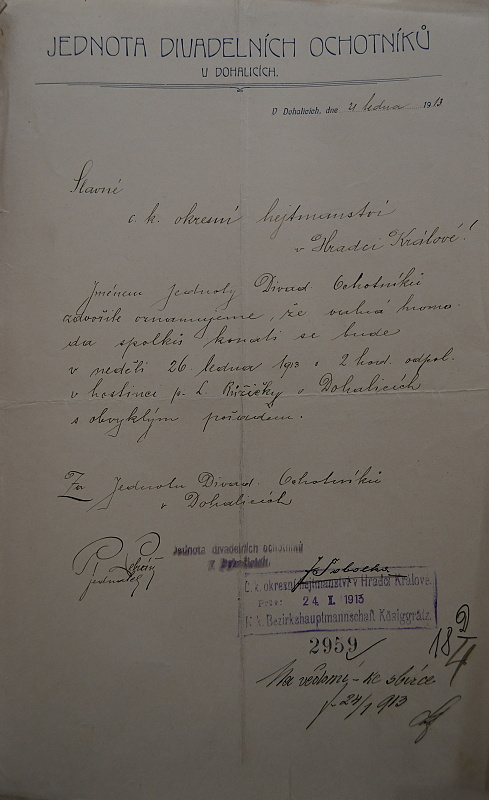 JEDNOTA DIVADELNÍCH OCHOTNÍKŮ
V DOHALICÍCH.
V Dohalicích, dne 21 ledna 1913
Slavné
c. k. okresní hejtmanství
v Hradci Králové!
Jménem Jednoty Divad. Ochotníků
zdvořile oznamujeme, že valná hroma-
da spolku konati se bude
v neděli 26. ledna 1913 o 2 hod. odpol.
v hostinci p. L. Růžičky v Dohalicích
s obvyklým pořadem.
Za Jednotu Divad. Ochotníků
v Dohalicích
jednatel
Jednota divadelních ochotníků
v Dohalicích.
C. k. okresní hejtmanství v Hradci Králové.
Praes: 24. I. 1913
K. k. Bezirkshauptmannschaft Königgrätz.
2959
18 9/4
Na vědomí - ke sbírce
24/1 913